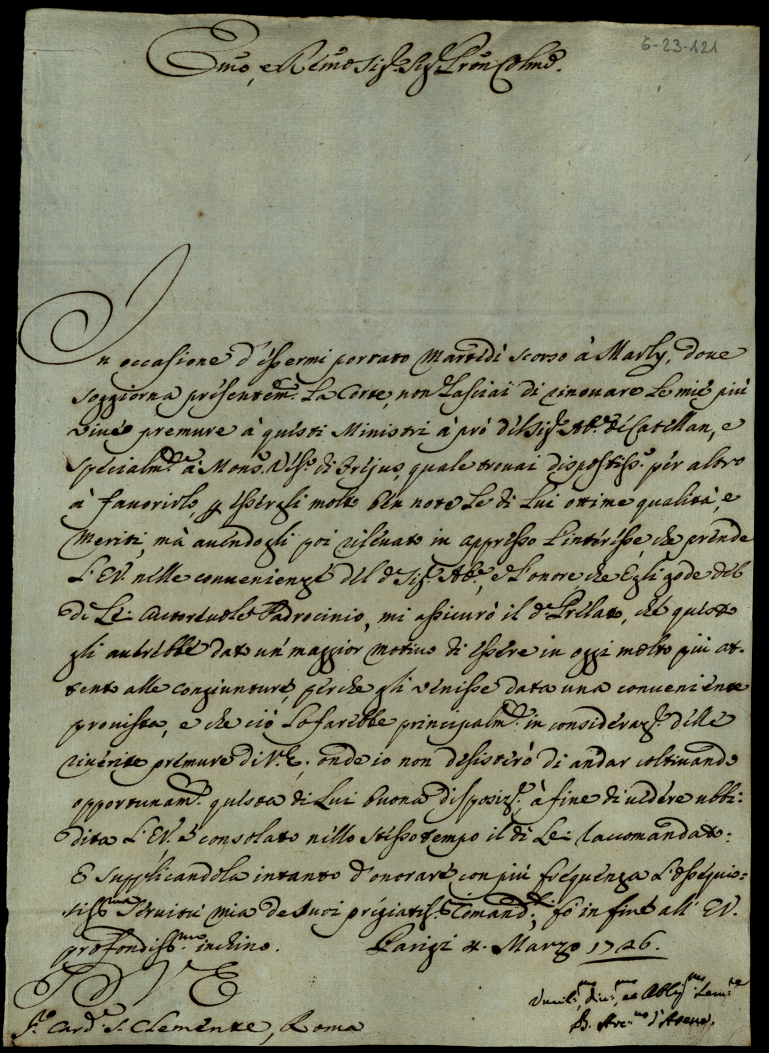 6-23-121
Em̃o, e Reṽmo Sig.r Sig.r Pron Col̃mo.
In occasione d'essermi portato Martedì scorso à Marly, doue
soggiorna presentem.te la Corte, non lasciai di rinouare le mie più
viue premure à questi Ministri à prò del Sig.r Ab.e di Catellan, e
specialm.te à Mons.r Vesc.o di Frejus, quale trouai dispostiss.o per altro
à fauorirlo, p essergli molto ben note le di Lui ottime qualità, e
meriti, mà auendogli poi rileuato in appresso l'interesse che prende
L'E.V. nelle conuenienze del d.o Sig.r Ab.e, e l'onore che Egli gode del
di Lei autoreuole Padrocinio, mi assicurò il d.o Prelato, che questo
gli aurebbe dato un maggior motiuo di essere in oggi molto più at-
tento alle congiunture, perche gli venisse data una conueniente
prouista, e che ciò lo farebbe principalm.te in consideraz.e delle
riuerite premure di V.E.; onde io non desisterò di andar coltiuando
opportunam.te questa di Lui buona disposiz.e à fine di uedere ubbi-
dita L'E.V. e consolato nello stesso tempo il di Lei raccomandato:
E supplicandola intanto d'onorare con più frequenza l'ossequio-
siss.ma seruitù mia de suoi pregiatis.mi Comand.i, fò in fine all' E.V.
profondiss.mo inchino. Parigi 4. Marzo 1726.
D V E
S.r Card.e S. Clemente, Roma
Vmil.mo diu.mo ed Obblig.mo Seru.re